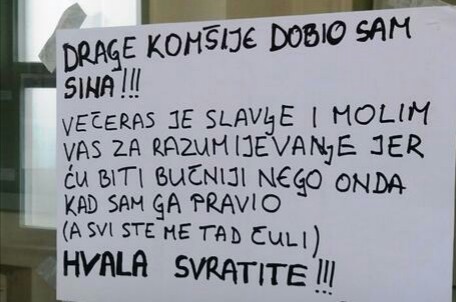 DRAGE KOMŠIJE DOBIO SAM
SINA!!!
VEČERAS JE SLAVJE I MOLIM
VAS ZA RAZUMIJEVANJE JER
ĆU BITI BUČNIJI NEGO ONDA
KAD SAM GA PRAVIO
(A SVI STE ME TAD ČULI)
HVALA SVRATITE!!!